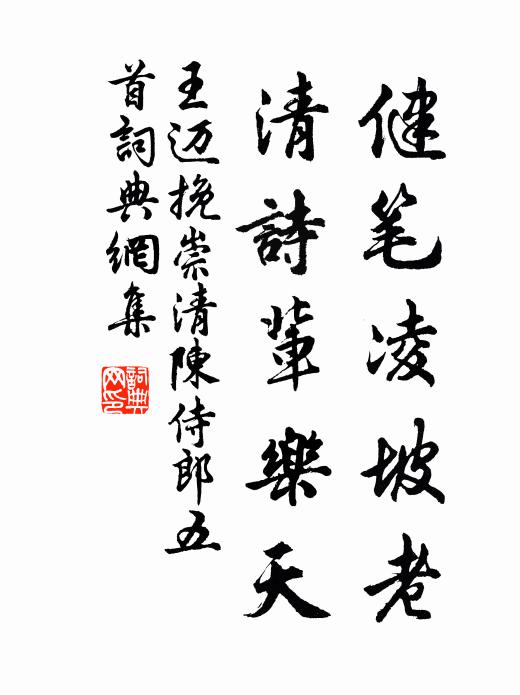 健笔凌坡老
清詩輩樂天
王迈挽崇清陳侍郎五
首詞典網集
詞典网印